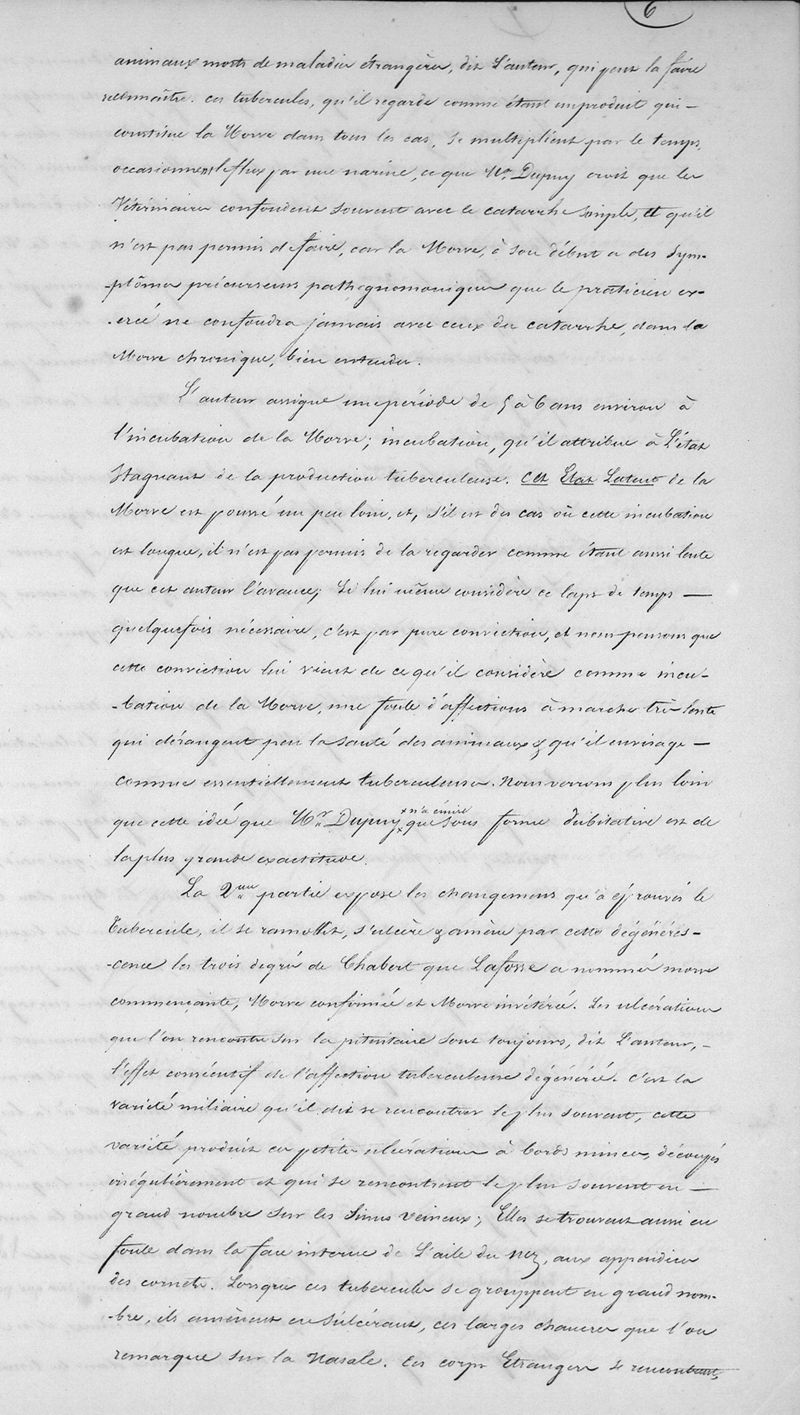 6
animaux morts de maladies étrangères, dit L'auteur, qui peut la faire
reconnaître. Ces tubercules, qu'il regarde comme étant un produit qui -
constitue la Morve dans tous les cas, se multiplient par le temps,
occasionnent le flux par une narine, ce que Mr. Dupuy croit que les
Vétérinaires confondent souvent avec le catarrhe simple, et qu'il
n'est pas permis de faire, car la Morve, à son début a des Sym-
-ptômes précurseurs pathognomoniques que le praticien ex-
-ercé ne confondra jamais avec ceux du catarrhe, dans la
Morve chronique, bien entendu.
L'auteur assigne une période de 5 à 6 ans environ à
l'incubation de la Morve; incubation, qu'il attribue à L'état
Stagnant de la production tuberculeuse. Cet Etat Latent de la
Morve est poussé un peu loin, et, s'il est des cas où cette incubation
est longue, il n'est pas permis de la regarder comme étant aussi lente
que cet auteur l'avance; Si lui même considère ce laps de temps -
quelquefois nécessaire, c'est par pure conviction, et nous pensons que
cette conviction lui vient de ce qu'il considère comme incu-
-bation de la Morve, une foule d'affections à marche très-lente
qui dérangent peu la santé des animaux & qu'il envisage -
comme essentiellement tuberculeuses. Nous verrons plus loin
que cette idée que Mr. Dupuy n'a émise que sous forme dubitative est de
la plus grande exactitude.
La 2me partie expose les changemens qu'a éprouvés le
Tubercule, il se ramollit, s'ulcère & amène par cette dégénéres-
-cence les trois degrés de Chabert que Lafosse a nommés morve
commençante, Morve confirmée et Morve invétérée. Les ulcérations
que l'on rencontre sur la pituitaire sont toujours, dit L'auteur, -
l'effet consécutif de l'affection tuberculeuse dégénérée. C'est la
variété miliaire qu'il dit se rencontrer le plus souvent, cette
variété produit ces petites ulcérations à bords minces, découpés
irrégulièrement et qui se rencontrent le plus souvent en -
grand nombre sur les Sinus veineux; Elles se trouvent aussi en
foule dans la face interne de L'aile du nez, aux appendices
des cornets. Lorsque ces tubercules se grouppent en grand nom-
-bre, ils amènent en s'ulcérant, ces larges chancres que l'on
remarque sur la Nasale. Ces corps Etrangers se rencontrent